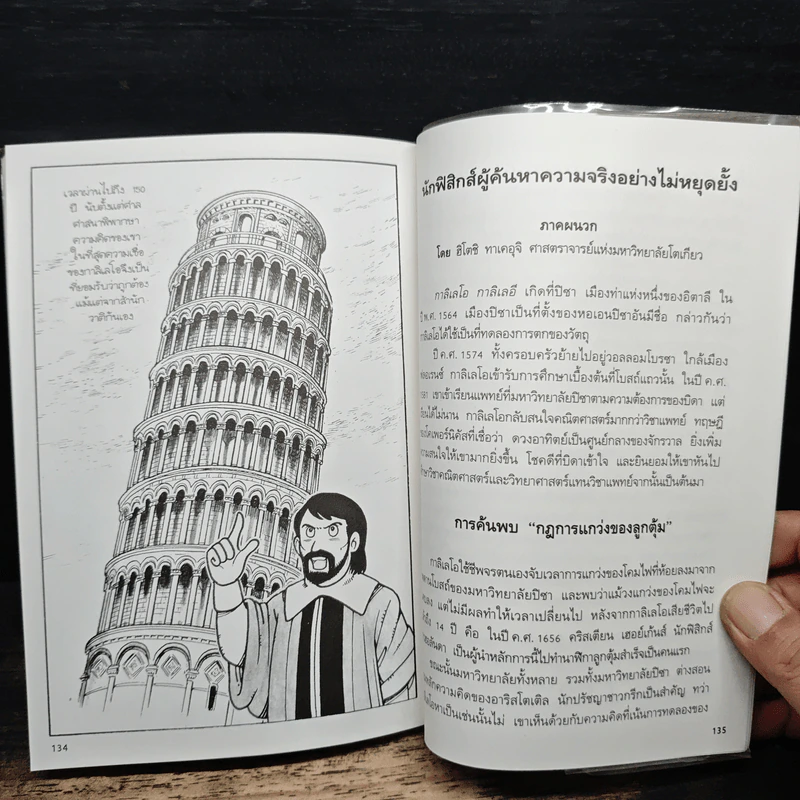 เวลาผ่านไปถึง ๒๕๐
ปี นับตั้งแต่ศาล
ศาสนาพิพากษา
ความคิดของเรา
ในที่สุดความเชื่อ
ของกาลิเลโอจึงเป็น
ที่ยอมรับว่าถูกต้อง
แม้แต่จากสำนัก
วาติกันเอง
134
นักฟิสิกส์ผู้ค้นหาความจริงอย่างไม่หยุดยั้ง
ภาคผนวก
โดย ฮิโตชิ ทาเคอุจิ ศาสตราจารย์แห่งมหาวิทยาลัยโตเกียว
กาลิเลโอ กาลิเลอี เกิดที่ปิซา เมืองท่าแห่งหนึ่งของอิตาลี ใน
ปี พ.ศ. 1564 เมืองปิซาเป็นที่ตั้งของหอเอนปิซาอันมีชื่อ กล่าวกันว่า
กาลิเลโอได้ใช้เป็นที่ทดลองการตกของวัตถุ
ปี ค.ศ. 1574 ทั้งครอบครัวย้ายไปอยู่วอลลอมโบรซา ใกล้เมือง
กาลิเลโอเข้ารับการศึกษาเบื้องต้นที่โบสถ์แถวนั้น ในปี ค.ศ.
เขาเข้าเรียนแพทย์ที่มหาวิทยาลัยปิซาตามความต้องการของบิดา แต่
ได้ไม่นาน กาลิเลโอกลับสนใจคณิตศาสตร์มากกว่าวิชาแพทย์ ทฤษฎี
ที่เชื่อว่า ดวงอาทิตย์เป็นศูนย์กลางของจักรวาล ยิ่งเพิ่ม
ความสนใจให้เขามากยิ่งขึ้น โชคดีที่บิดาเข้าใจ และยินยอมให้เขาหันไป
ศึกษาวิชาคณิตศาสตร์และวิทยาศาสตร์แทนวิชาแพทย์จากนั้นเป็นต้นมา
การค้นพบ “กฎการแกว่งของลูกตุ้ม”
กาลิเลโอใช้ชีพจรตนเองจับเวลาการแกว่งของโคมไฟที่ห้อยลงมาจาก
เพดานโบสถ์ของมหาวิทยาลัยปิซา และพบว่าแม้วงแกว่งของโคมไฟจะ
ลดลง แต่ไม่มีผลทำให้เวลาเปลี่ยนไป หลังจากกาลิเลโอเสียชีวิตไป
14 ปี คือ ในปี ค.ศ. 1656 คริสเตียน เฮอย์เก้นส์ นักฟิสิกส์
เป็นผู้นำหลักการนี้ไปทำนาฬิกาลูกตุ้มสำเร็จเป็นคนแรก
ขณะนั้นมหาวิทยาลัยทั้งหลาย รวมทั้งมหาวิทยาลัยปิซา ต่างสอน
ความคิดของอาริสโตเติล นักปรัชญาชาวกรีกเป็นสำคัญ ทว่า
เป็นเช่นนั้นไม่ เขาเห็นด้วยกับความคิดที่เน้นการทดลองของ
135